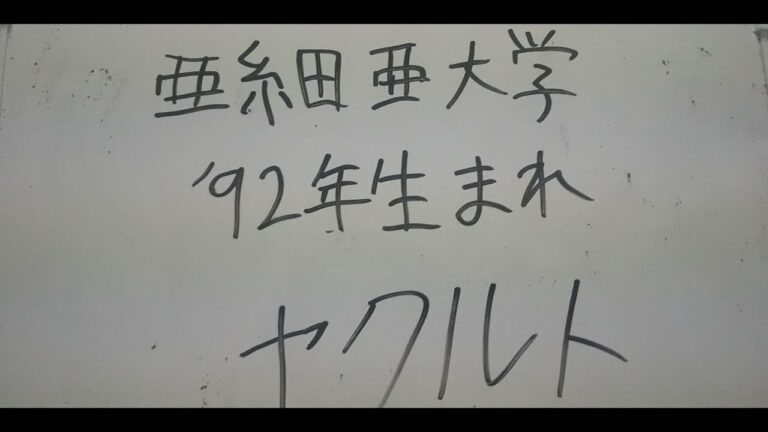 亜細亜大学
'92年生まれ
ヤクルト